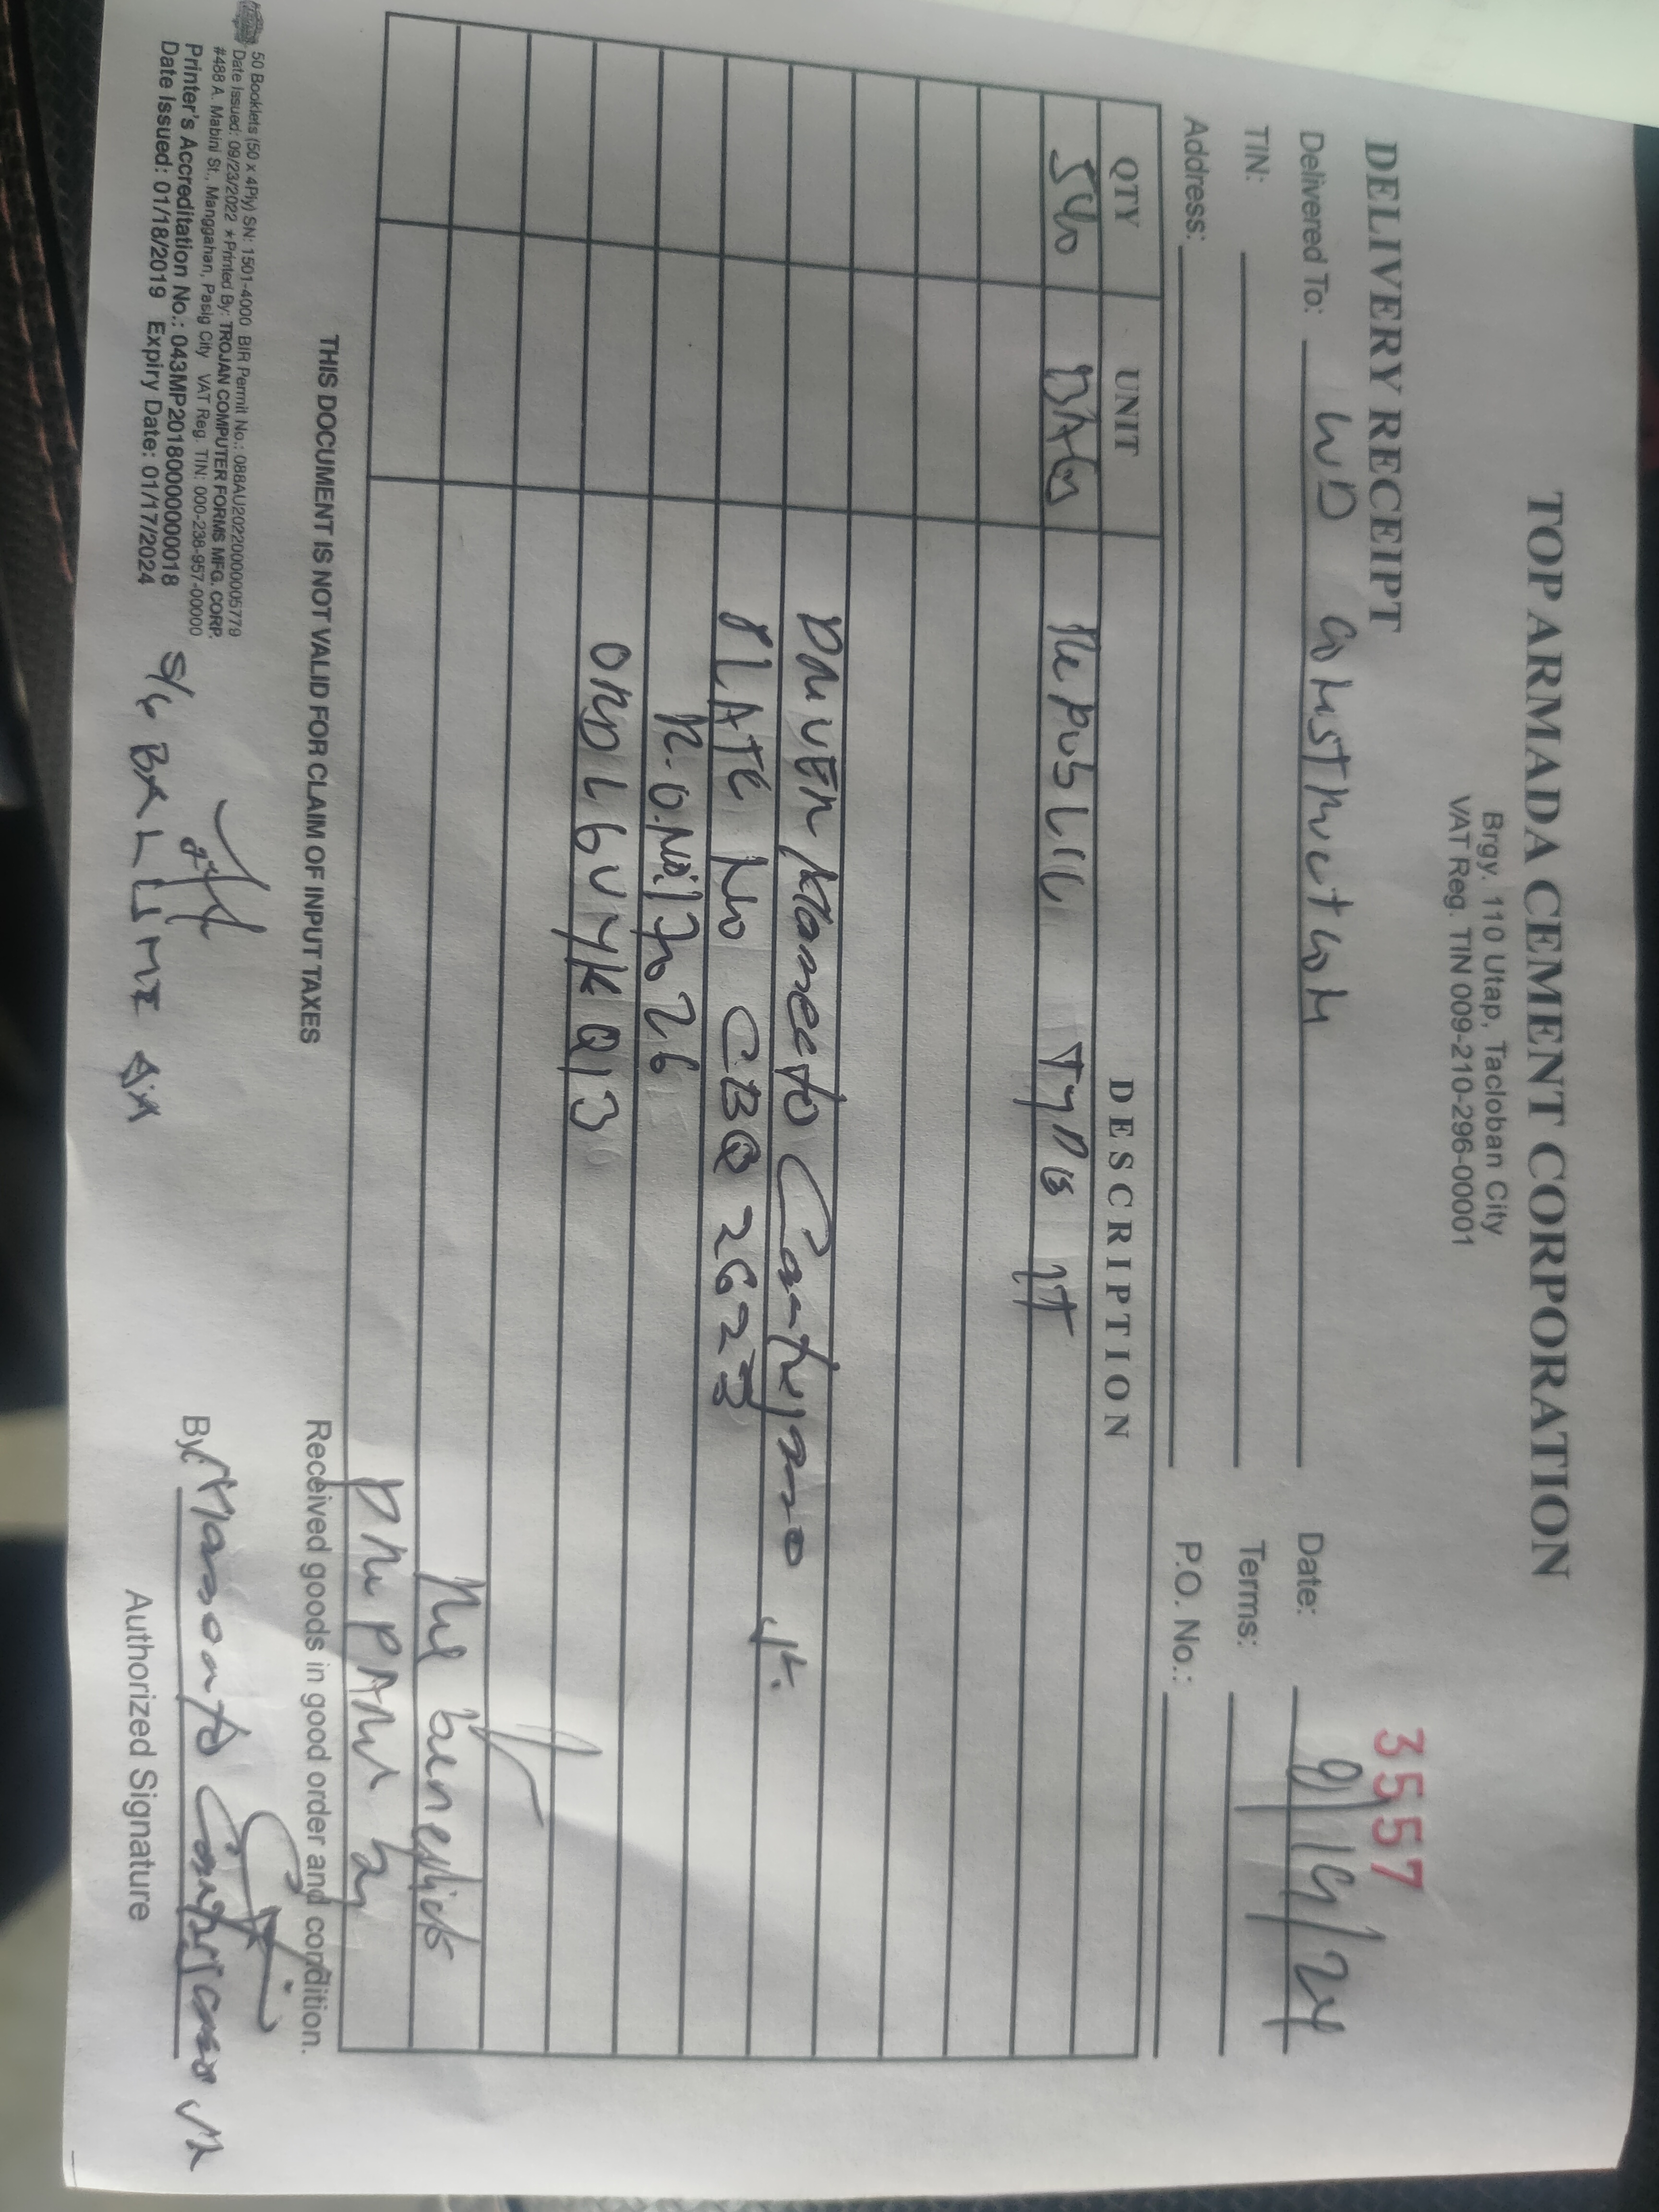 TOP ARMADA CEMENT CORPORATION
Brgy. 110 Utap, Tacloban City
VAT Reg. TIN 009-210-296-00001
DELIVERY RECEIPT
3557
Delivered To: WD Construction
Date: 9/19/24
TIN:
Terms:
Address:
P.O. No.:
QTY UNIT DESCRIPTION
540 BAGS Republic Type 1T
DRIVER
PLATE No CBQ 2623
R.O. No. 17026
ORDL6VYKQ13
THIS DOCUMENT IS NOT VALID FOR CLAIM OF INPUT TAXES
Received goods in good order and condition.
50 Booklets (50 x 4Ply) SN: 1501-4000 BIR Permit No.: 088AU20220000005779
Date Issued: 09/23/2022 ★Printed By: TROJAN COMPUTER FORMS MFG. CORP.
#488 A. Mabini St., Manggahan, Pasig City VAT Reg. TIN: 000-238-957-00000
Printer's Accreditation No.: 043MP20180000000018
Date Issued: 01/18/2019 Expiry Date: 01/17/2024
By:
Authorized Signature